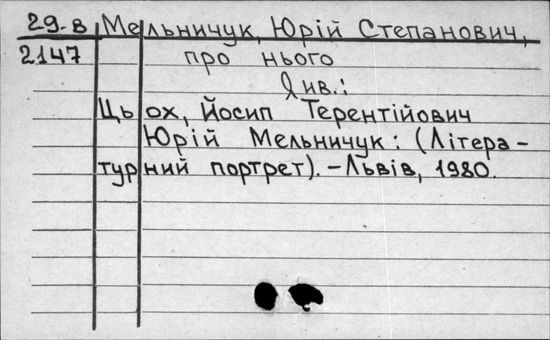 29-в Мельничук, Юрій Степанович,
2147 про нього
див.:
Цьох, Йосип Терентійович
Юрій Мельничук: (Літера-
турний портрет). – Львів, 1980.